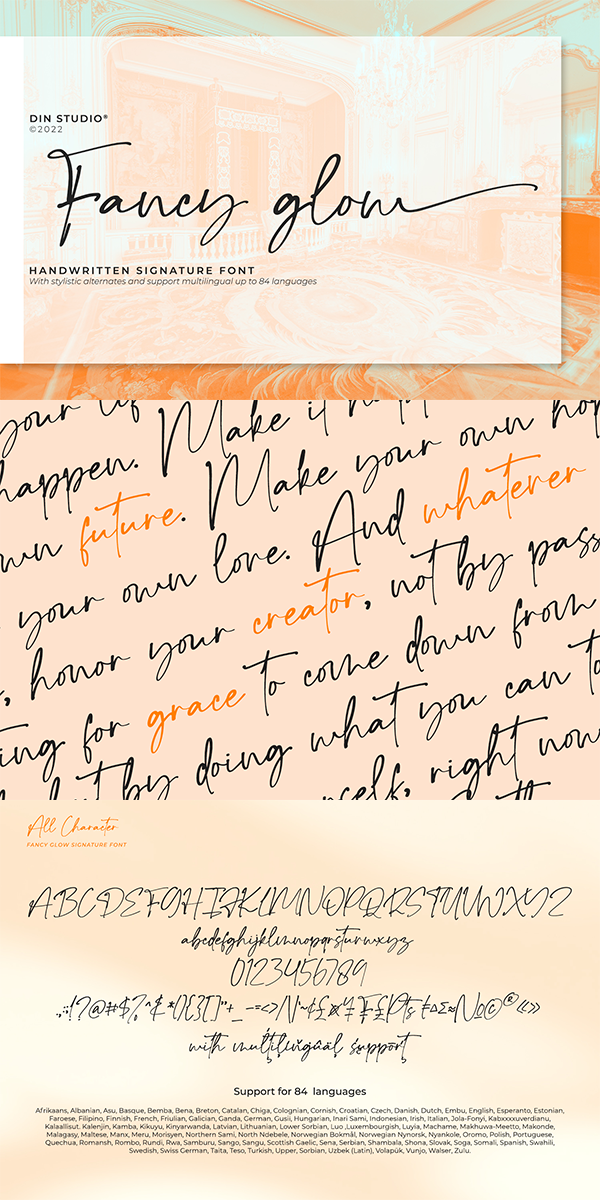 DIN STUDIO®
©2022
Fancy glow
HANDWRITTEN SIGNATURE FONT
With stylistic alternates and support multilingual up to 84 languages
your
happen. Make it
own future. Make your own
your own love. And whatever
, honor your creator, not by
for grace to come down from
but by doing what you can to
right now
All Character
FANCY GLOW SIGNATURE FONT
ABCDEFGHIJKLMNOPQRSTUVWXYZ
abcdefghijklmnopqrstuvwxyz
0123456789
with multilingual support
Support for 84 languages
Afrikaans, Albanian, Asu, Basque, Bemba, Bena, Breton, Catalan, Chiga, Colognian, Cornish, Croatian, Czech, Danish, Dutch, Embu, English, Esperanto, Estonian,
Faroese, Filipino, Finnish, French, Friulian, Galician, Ganda, German, Gusii, Hungarian, Inari Sami, Indonesian, Irish, Italian, Jola-Fonyi, Kabxxxxuverdianu,
Kalaallisut, Kalenjin, Kamba, Kikuyu, Kinyarwanda, Latvian, Lithuanian, Lower Sorbian, Luo ,Luxembourgish, Luyia, Machame, Makhuwa-Meetto, Makonde,
Malagasy, Maltese, Manx, Meru, Morisyen, Northern Sami, North Ndebele, Norwegian Bokmål, Norwegian Nynorsk, Nyankole, Oromo, Polish, Portuguese,
Quechua, Romansh, Rombo, Rundi, Rwa, Samburu, Sango, Sangu, Scottish Gaelic, Sena, Serbian, Shambala, Shona, Slovak, Soga, Somali, Spanish, Swahili,
Swedish, Swiss German, Taita, Teso, Turkish, Upper, Sorbian, Uzbek (Latin), Volapük, Vunjo, Walser, Zulu.